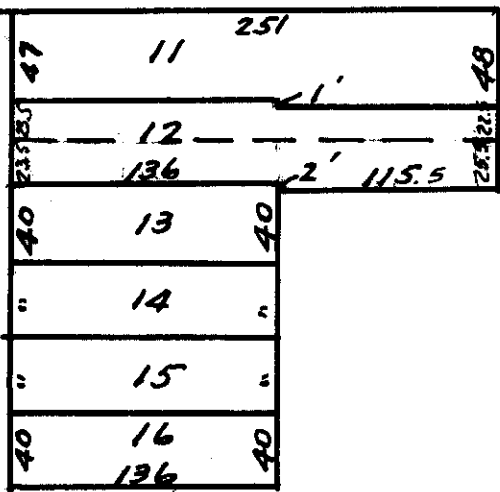 251
47 11 48
1'
23.5 12 22.5
23.5 136 2' 115.5 25.5
40 13 40
" 14 "
" 15 "
40 16 40
136